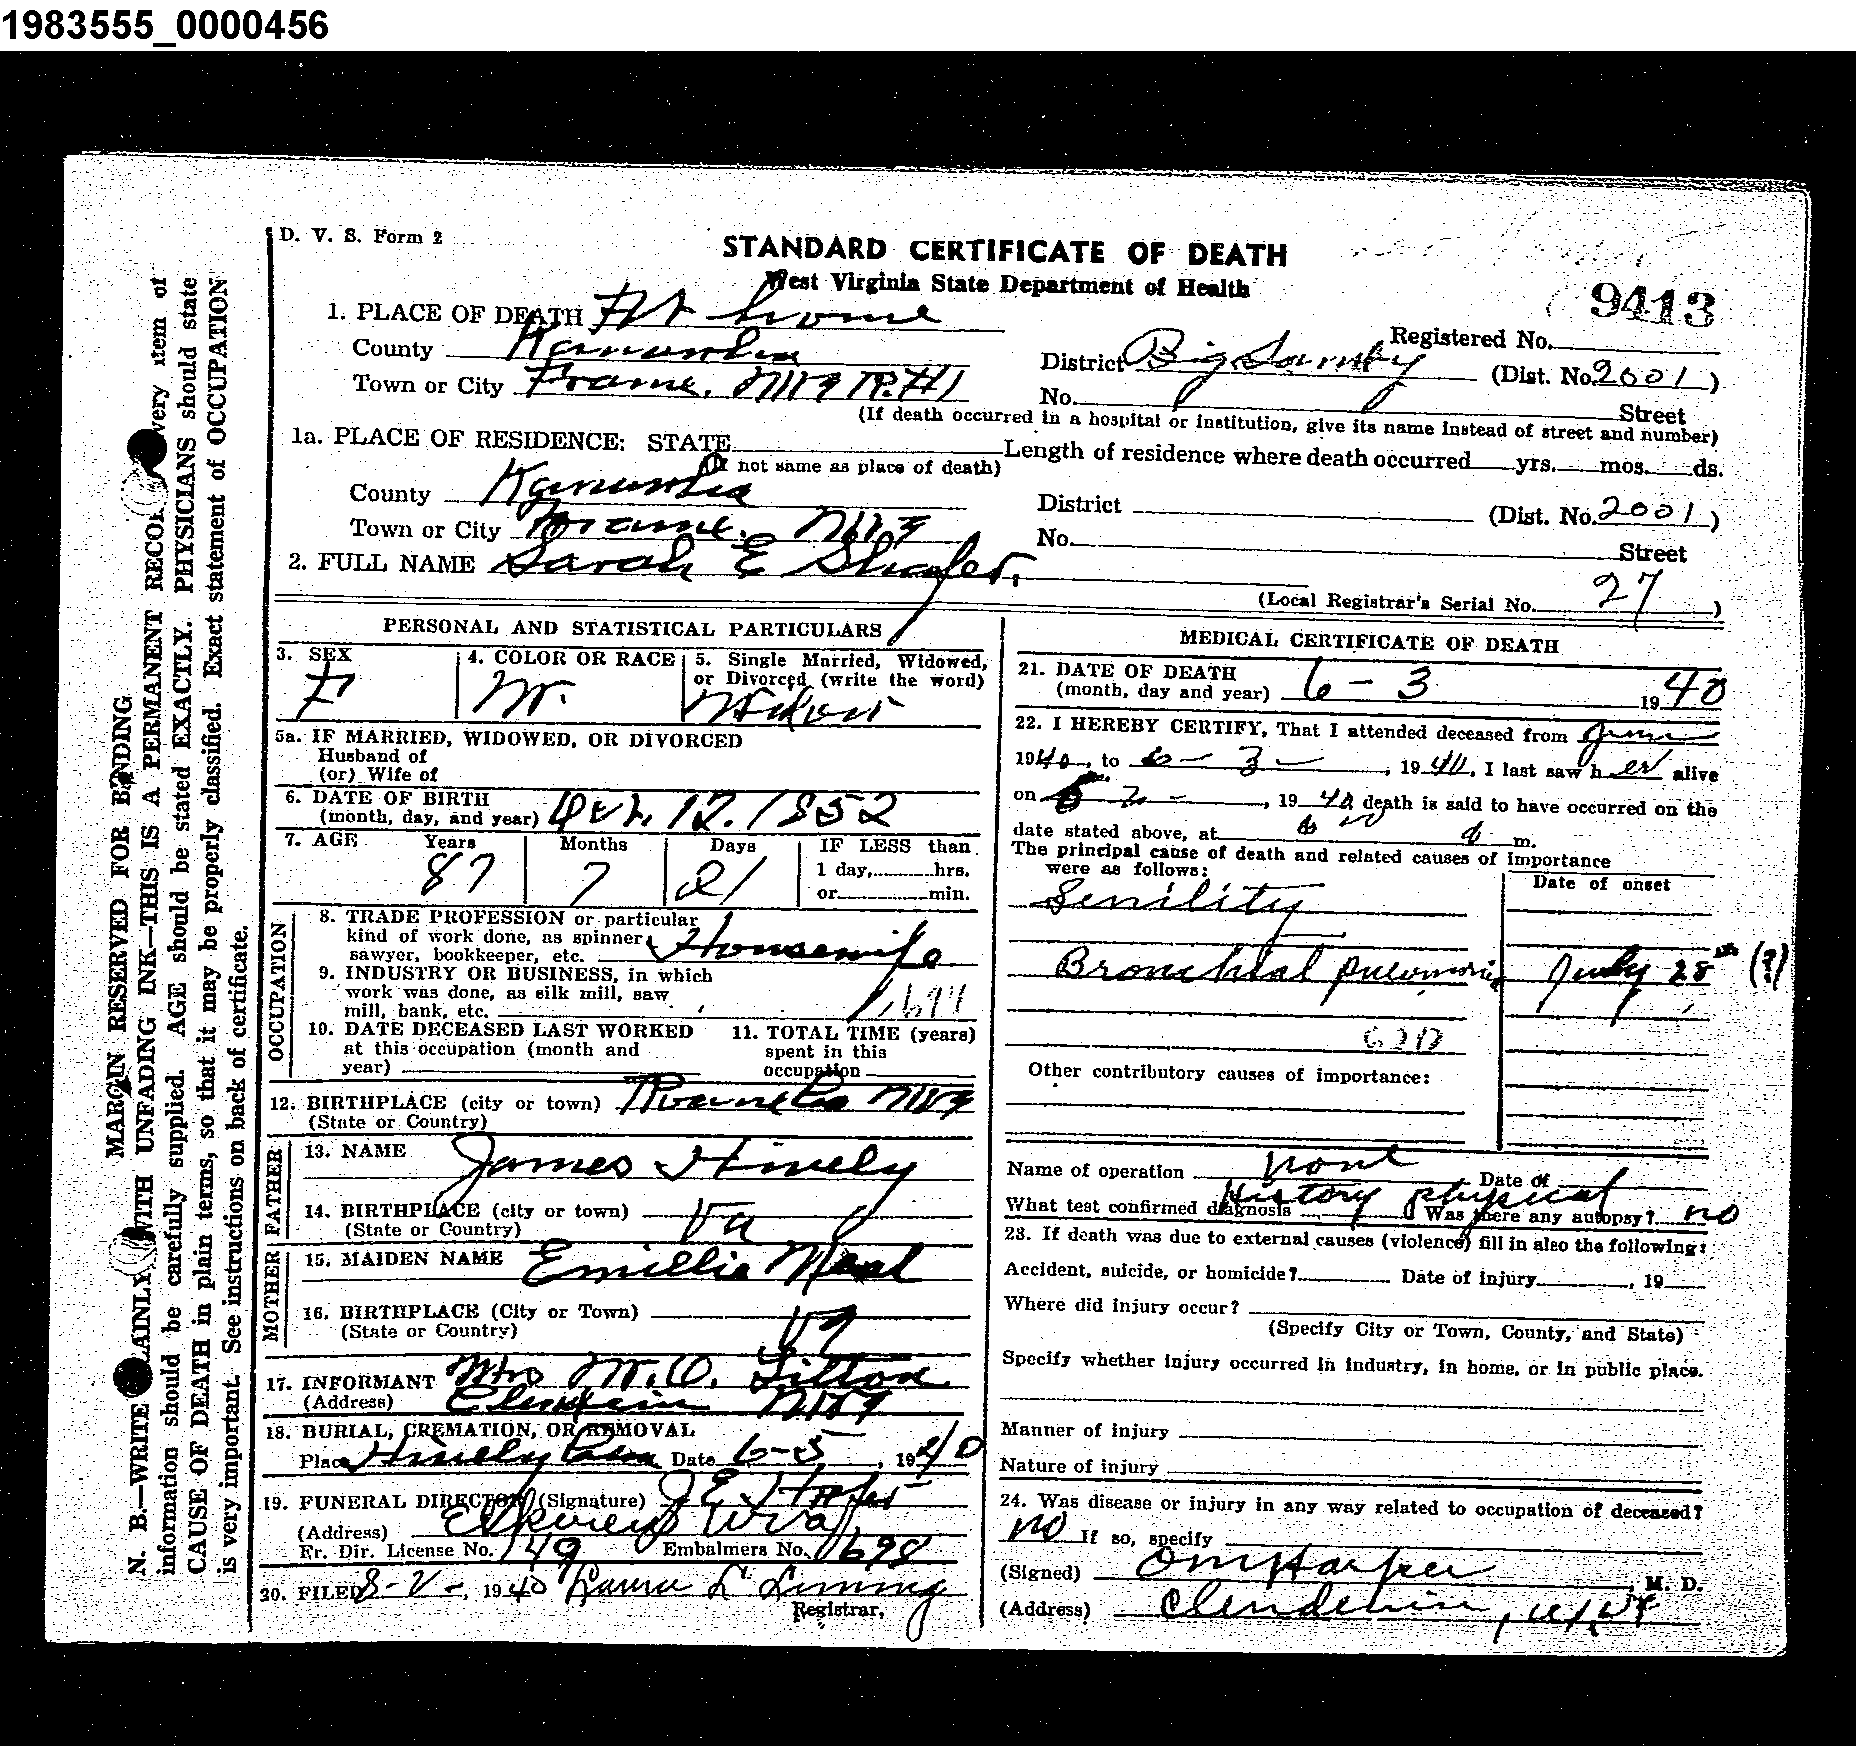 1983555_0000456
D. V. S. Form 2
STANDARD CERTIFICATE OF DEATH
West Virginia State Department of Health
9413
1. PLACE OF DEATH At home
Registered No.
County Kanawha
District Big Sandy (Dist. No. 2001)
Town or City Frame, WVa R.#1
No. Street
(If death occurred in a hospital or institution, give its name instead of street and number)
1a. PLACE OF RESIDENCE: STATE
(If not same as place of death)
Length of residence where death occurred yrs. mos. ds.
County Kanawha
District (Dist. No. 2001)
Town or City Frame, WVa
No. Street
2. FULL NAME Sarah E Shafer.
(Local Registrar's Serial No. 27)
PERSONAL AND STATISTICAL PARTICULARS
3. SEX F
4. COLOR OR RACE W.
5. Single Married, Widowed, or Divorced (write the word)
5a. IF MARRIED, WIDOWED, OR DIVORCED
Husband of
(or) Wife of
6. DATE OF BIRTH
(month, day, and year) Oct. 12. 1852
7. AGE Years 87 Months 7 Days 21
IF LESS than
1 day, hrs.
or min.
OCCUPATION
8. TRADE PROFESSION or particular
kind of work done, as spinner,
sawyer, bookkeeper, etc. Housewife
9. INDUSTRY OR BUSINESS, in which
work was done, as silk mill, saw
mill, bank, etc.
10. DATE DECEASED LAST WORKED
at this occupation (month and
year)
11. TOTAL TIME (years)
spent in this
occupation
12. BIRTHPLACE (city or town) Roanoke WVa
(State or Country)
FATHER
13. NAME James Hively
14. BIRTHPLACE (city or town) Va
(State or Country)
MOTHER
15. MAIDEN NAME Emillie Neal
16. BIRTHPLACE (City or Town) Va
(State or Country)
17. INFORMANT Mrs W.O.
(Address) Clendenin WVa
18. BURIAL, CREMATION, OR REMOVAL
Place Hively Cem Date 6-5, 1940
19. FUNERAL DIRECTOR (Signature) J E
(Address) Elkview W Va
Fr. Dir. License No. 149 Embalmers No. 698
20. FILED 8-2-, 1940 Laura L
Registrar.
MEDICAL CERTIFICATE OF DEATH
21. DATE OF DEATH
(month, day and year) 6 - 3 1940
22. I HEREBY CERTIFY, That I attended deceased from June
1940, to 6 - 3 -, 1940, I last saw her alive
on 6 2 -, 1940, death is said to have occurred on the
date stated above, at a m.
The principal cause of death and related causes of importance
were as follows:
Date of onset
Senility
Bronchial pneumonia July 28th (?)
Other contributory causes of importance:
Name of operation none Date of
What test confirmed diagnosis History physical Was there any autopsy? no
23. If death was due to external causes (violence) fill in also the following:
Accident, suicide, or homicide? Date of injury , 19
Where did injury occur?
(Specify City or Town, County, and State)
Specify whether injury occurred in industry, in home, or in public place.
Manner of injury
Nature of injury
24. Was disease or injury in any way related to occupation of deceased?
no If so, specify
(Signed) O M Harper, M. D.
(Address) Clendenin, W. Va
MARGIN RESERVED FOR BINDING
N. B.—WRITE PLAINLY WITH UNFADING INK—THIS IS A PERMANENT RECORD. Every item of
information should be carefully supplied. AGE should be stated EXACTLY. PHYSICIANS should state
CAUSE OF DEATH in plain terms, so that it may be properly classified. Exact statement of OCCUPATION
is very important. See instructions on back of certificate.